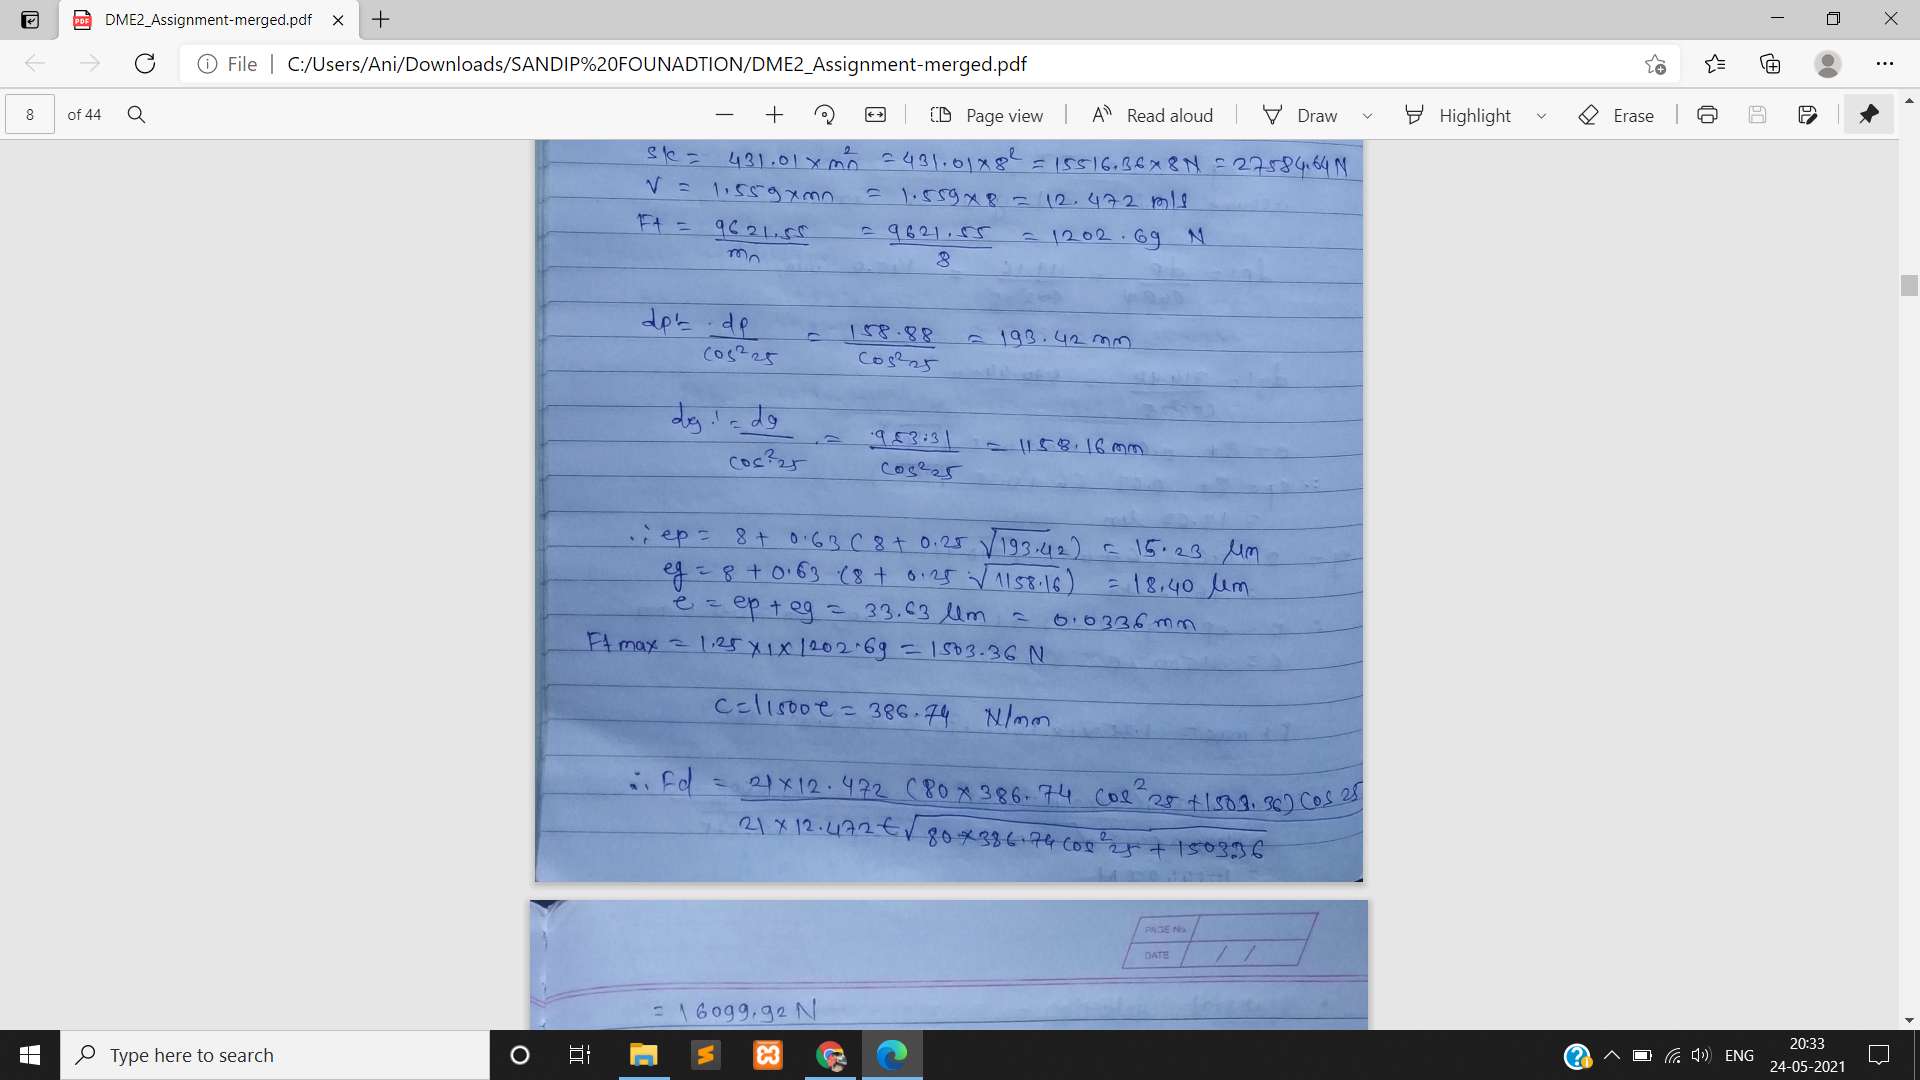 DME2_Assignment-merged.pdf
File | C:/Users/Ani/Downloads/SANDIP%20FOUNADTION/DME2_Assignment-merged.pdf
8 of 44
Page view | Read aloud | Draw Highlight Erase
= 431.01 × mn² = 431.01×8² = 15516.36×8N = 27584.64N
V = 1.559×mn = 1.559×8 = 12.472 m/s
Ft = 9621.55/mn = 9621.55/8 = 1202.69 N
dp' = dp/cos²25 = 158.88/cos²25 = 193.42 mm
dg' = dg/cos²25 = 953.31/cos²25 = 1158.16 mm
∴ ep = 8 + 0.63 (8 + 0.25 √193.42) = 15.23 μm
eg = 8 + 0.63 (8 + 0.25 √1158.16) = 18.40 μm
e = ep + eg = 33.63 μm = 0.0336 mm
Ft max = 1.25 × 1 × 1202.69 = 1503.36 N
C = 11500 e = 386.74 N/mm
∴ Fd = 21 × 12.472 (80 × 386.74 cos²25 + 1503.36) cos 25
21 × 12.472 + √80 × 386.74 cos²25 + 1503.36
PAGE No.
DATE / /
= 16099.92 N
Type here to search
ENG
20:33
24-05-2021